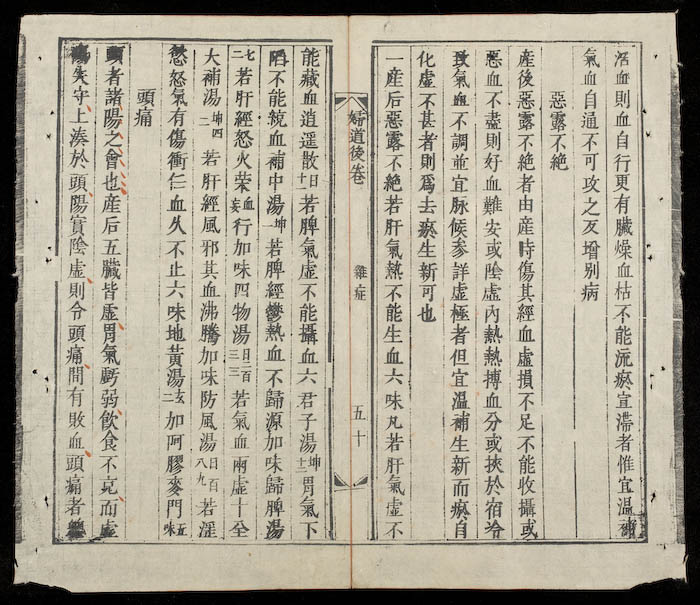 活血則血自行更有臟燥血枯不能流瘀宜滯者惟宜温補
氣血自通不可攻之反增别病
惡露不絶
產後惡露不絶者由産時傷其經血虚損不足不能收攝或
惡血不盡則好血難安或陰虚內熱熱搏血分或挾於宿冷
致氣血不調並宜脉候參詳虚極者但宜温補生新而瘀自
化虚不甚者則爲去瘀生新可也
一産后惡露不絶若肝氣熱不能生血六味丸若肝氣虚不
婦道後卷
雜症
五十
能藏血逍遥散日十一若脾氣虚不能攝血六君子湯坤十二胃氣下
陷不能統血補中湯坤一若脾經鬱熱血不歸源加味歸脾湯
七二若肝經怒火榮血妄行加味四物湯日二百三三若氣血兩虚十全
大補湯坤四二若肝經風邪其血沸騰加味防風湯日百八九若滛
慾怒氣有傷衝仁血久不止六味地黄湯玄二加阿膠麥門五味
頭痛
頭者諸陽之會也産后五臟皆虚胃氣虧弱飲食不克而虚
陽失守上湊於頭陽實陰虚則令頭痛間有敗血頭痛者